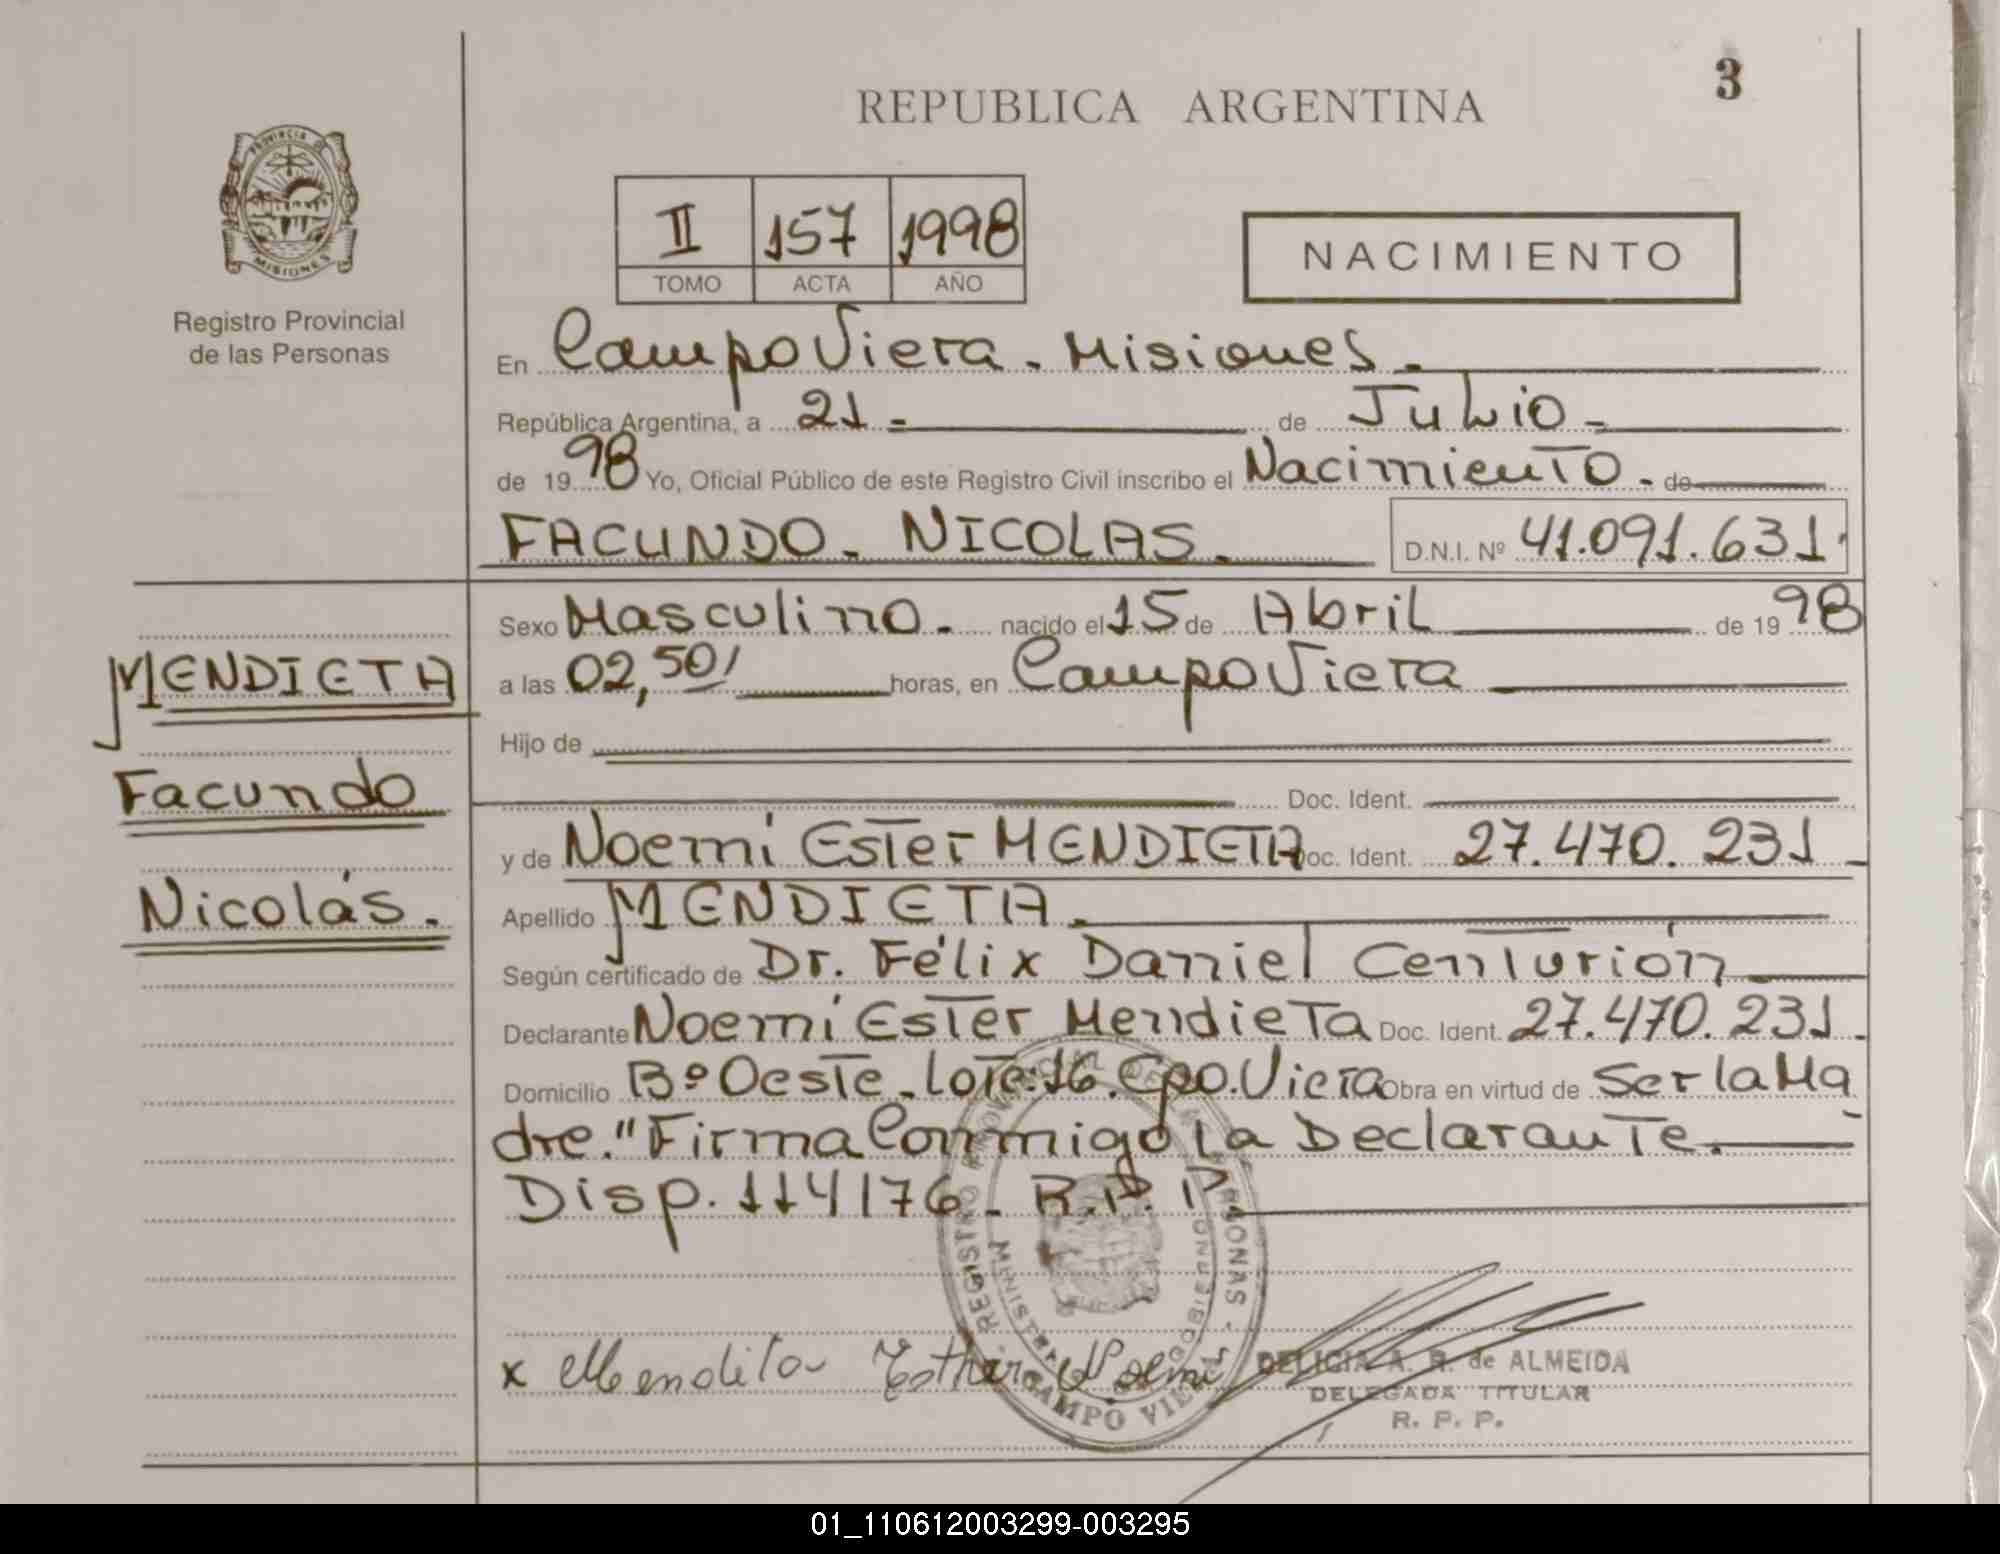 3
REPUBLICA ARGENTINA
PROVINCIA DE
MISIONES
Registro Provincial
de las Personas
II 157 1998
TOMO ACTA AÑO
NACIMIENTO
En Campo Viera - Misiones -
República Argentina, a 21 - de Julio -
de 19 98 Yo, Oficial Público de este Registro Civil inscribo el Nacimiento - de
FACUNDO - NICOLAS - D.N.I. Nº 41.091.631
Sexo Masculino - nacido el 15 de Abril de 19 98
MENDIETA
a las 02,50' horas, en Campo Viera
Hijo de
Facundo
Doc. Ident.
y de Noemí Ester MENDIETA Doc. Ident. 27.470.231 -
Nicolás.
Apellido MENDIETA -
Según certificado de Dr. Félix Daniel Centurión
Declarante Noemí Ester Mendieta Doc. Ident. 27.470.231 -
Domicilio Bº Oeste - Lote: 16. Cpo. Viera Obra en virtud de Ser la Ma
dre. "Firma Conmigo la Declarante.
Disp. 114/76 - R.P.P
REGISTRO PROVINCIAL DE LAS PERSONAS -
CAMPO VIERA
x Mendita Esther Noemi
DELICIA A. R. de ALMEIDA
DELEGADA TITULAR
R. P. P.
01_110612003299-003295